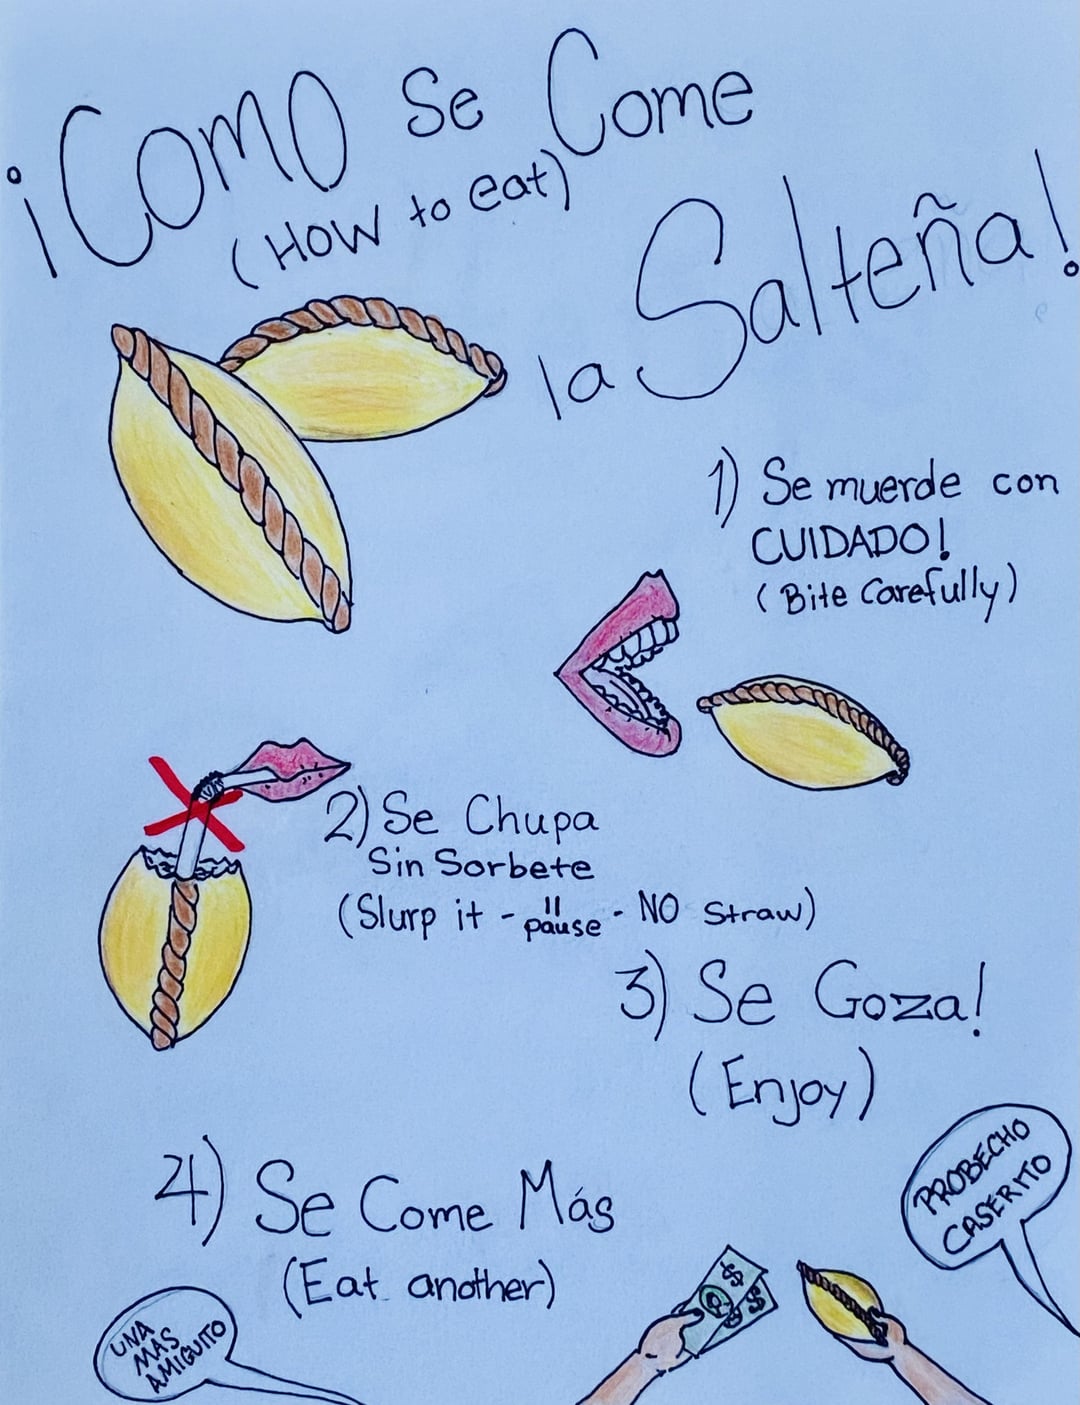 ¡Como Se Come
(How to eat)
la Salteña!
1) Se muerde con
CUIDADO!
(Bite Carefully)
2) Se Chupa
Sin Sorbete
(Slurp it - pause - NO Straw)
3) Se Goza!
(Enjoy)
4) Se Come Más
(Eat another)
PROBECHO
CASERITO
UNA
MAS
AMIGUITO
$
$